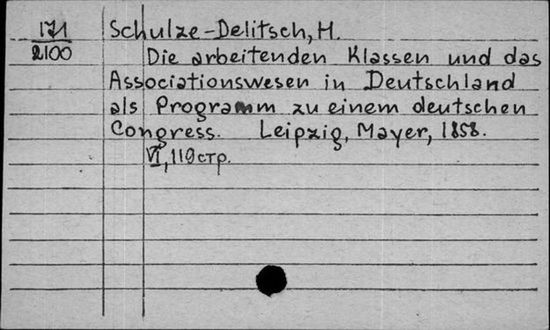 171 Schulze-Delitsch, H.
2100 Die arbeitenden Klassen und das
Associationswesen in Deutschland
als Programm zu einem deutschen
Congress. Leipzig, Mayer, 1858.
VI, 119 стр.